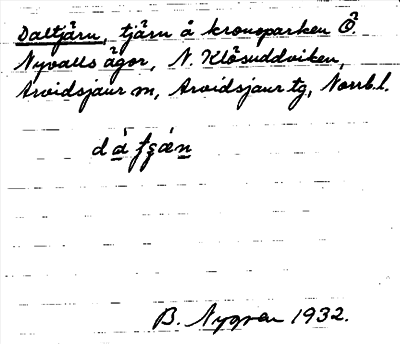 Daltjärn, tjärn å kronoparken Ö.
Nyvalls ägor, N. Klösuddviken,
Arvidsjaur sn, Arvidsjaur tg, Norrb. l.
B. Nygren 1932.